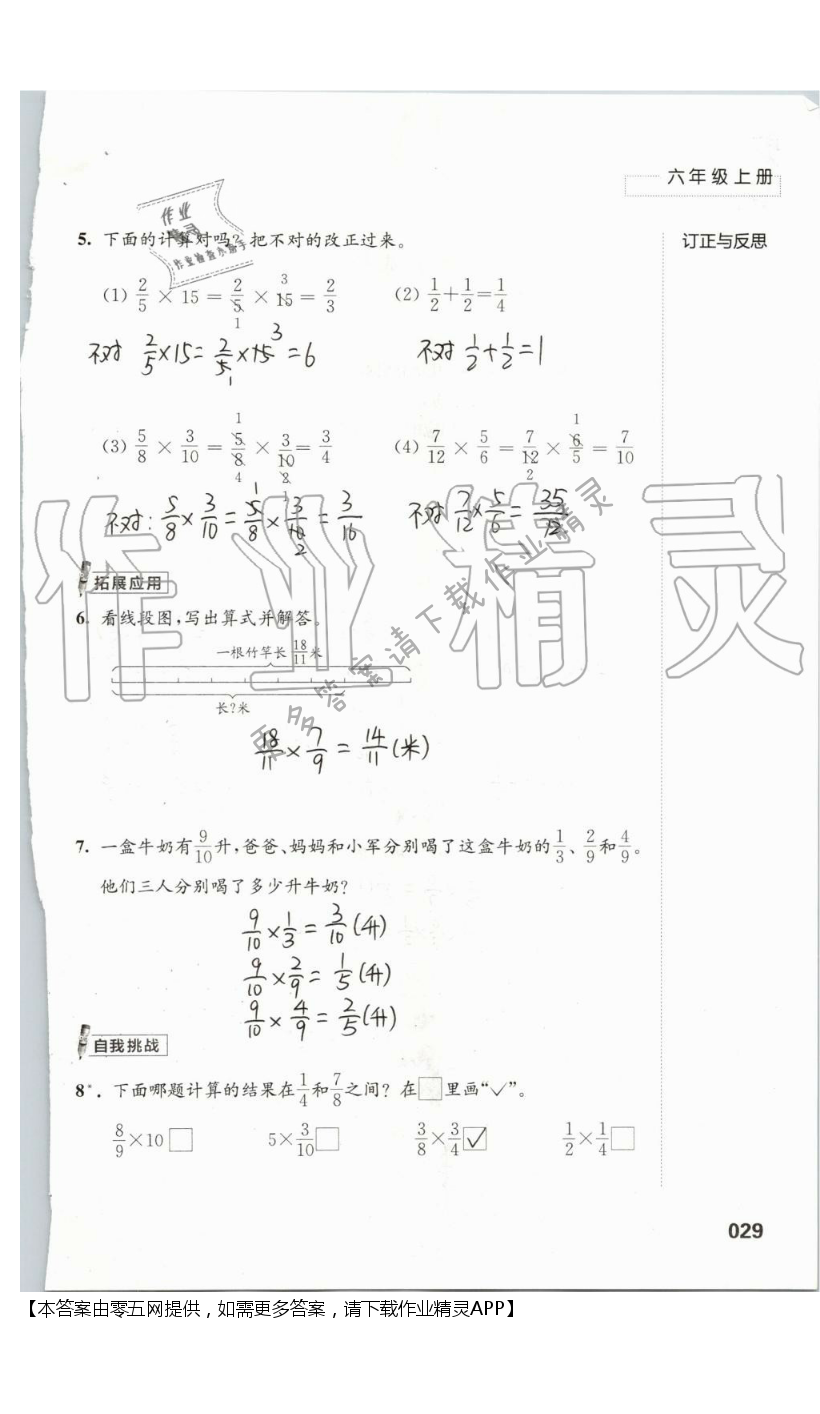 六年级上册
订正与反思
5. 下面的计算对吗?把不对的改正过来。
(1) 2/5 × 15 = 2/5 1 × 15 3 = 2/3 (2) 1/2 + 1/2 = 1/4
不对 2/5 × 15 = 2/5 1 × 15 3 = 6 不对 1/2 + 1/2 = 1
(3) 5/8 × 3/10 = 5 1/8 4 × 3/10 2 = 3/4 (4) 7/12 × 5/6 = 7/12 2 × 6 1/5 = 7/10
不对: 5/8 × 3/10 = 5 1/8 × 3/10 2 = 3/16 不对 7/12 × 5/6 = 35/12
拓展应用
6. 看线段图,写出算式并解答。
一根竹竿长 18/11 米
长?米
18/11 × 7/9 = 14/11 (米)
7. 一盒牛奶有 9/10 升,爸爸、妈妈和小军分别喝了这盒牛奶的 1/3、2/9 和 4/9。
他们三人分别喝了多少升牛奶?
9/10 × 1/3 = 3/10 (升)
9/10 × 2/9 = 1/5 (升)
9/10 × 4/9 = 2/5 (升)
自我挑战
8*. 下面哪题计算的结果在 1/4 和 7/8 之间? 在□里画“✓”。
8/9 × 10 □ 5 × 3/10 □ 3/8 × 3/4 ☑ 1/2 × 1/4 □
029
作业精灵
更多答案请下载作业精灵
作业
精灵
作业检查小助手
【本答案由零五网提供,如需更多答案,请下载作业精灵APP】